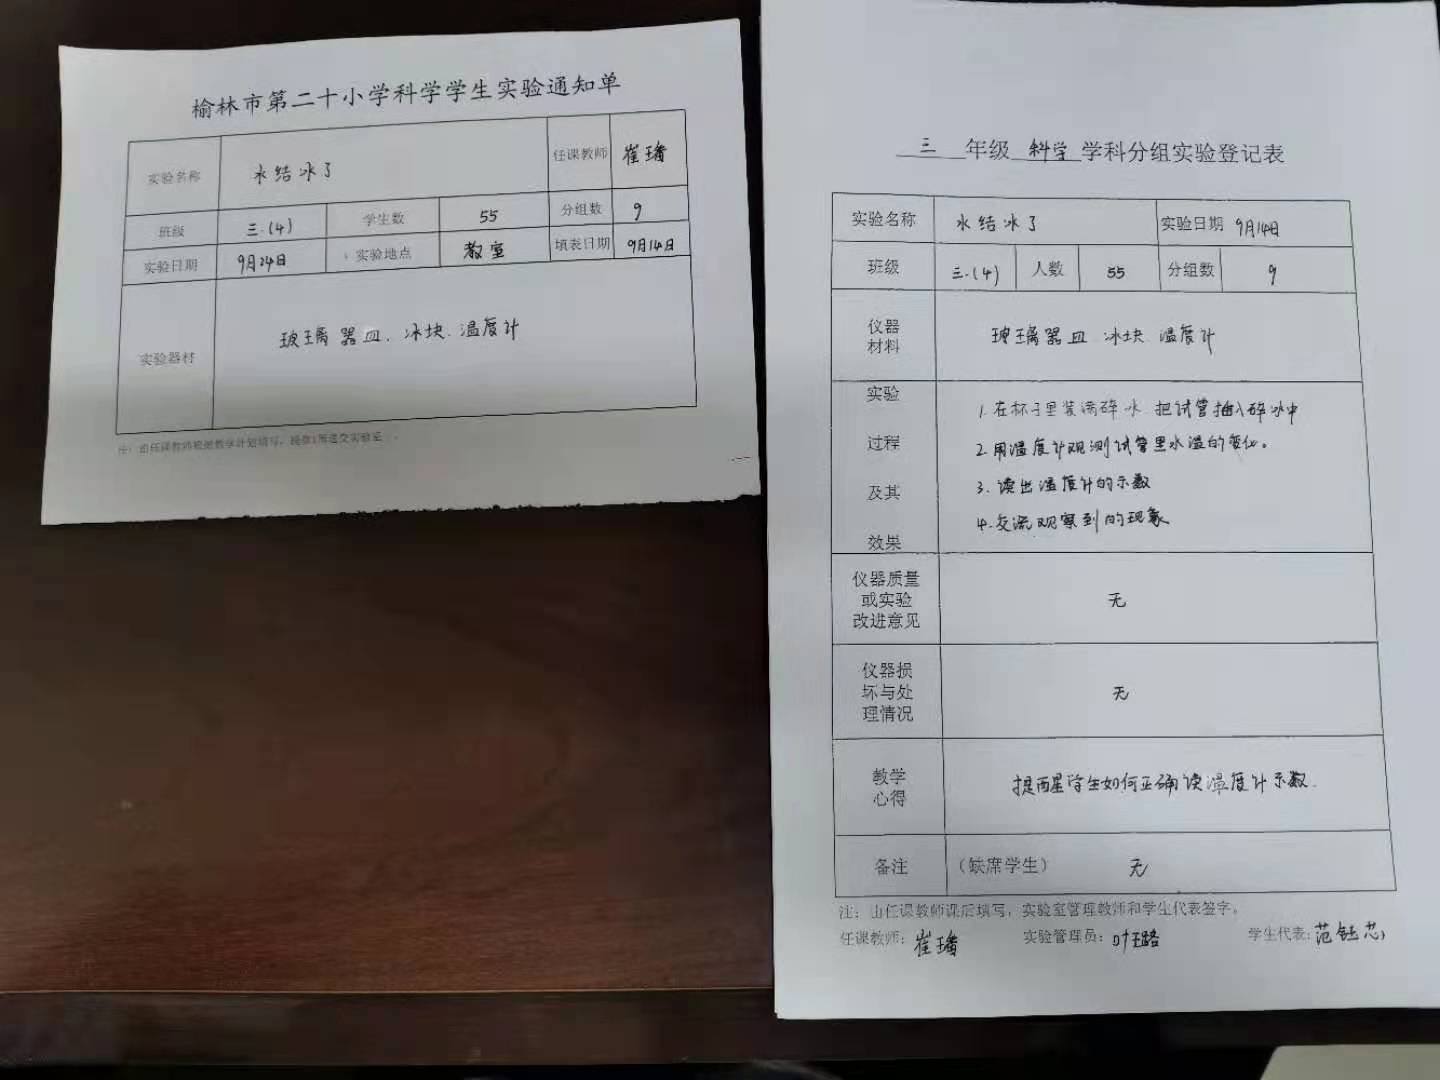 榆林市第二十小学科学学生实验通知单
实验名称 水结冰了 任课教师 崔璠
班级 三.(4) 学生数 55 分组数 9
实验日期 9月24日 实验地点 教室 填表日期 9月14日
实验器材 玻璃器皿、冰块、温度计
注：由任课教师根据教学计划填写，提前1周送交实验室
三 年级 科学 学科分组实验登记表
实验名称 水结冰了 实验日期 9月14日
班级 三.(4) 人数 55 分组数 9
仪器
材料
玻璃器皿 冰块 温度计
实验
过程
及其
效果
1.在杯子里装满碎冰 把试管插入碎冰中
2.用温度计观测试管里水温的变化。
3.读出温度计的示数
4.交流观察到的现象
仪器质量
或实验
改进意见
无
仪器损
坏与处
理情况
无
教学
心得
提醒学生如何正确读温度计示数.
备注 （缺席学生） 无
注：由任课教师课后填写，实验室管理教师和学生代表签字。
任课教师：崔璠 实验管理员：叶璐 学生代表：范钰芯